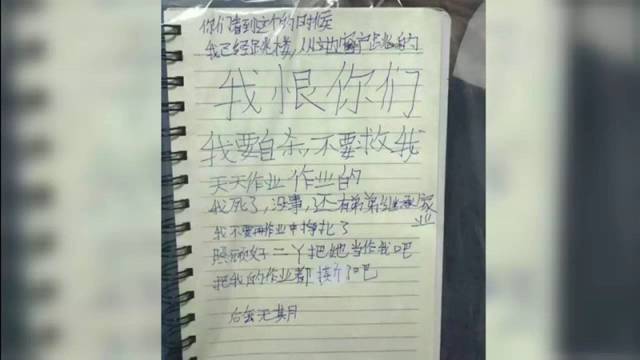 你们看到这个的时候
我已经跳楼,从这边窗户跳的
我恨你们
我要自杀,不要救我
天天作业作业的
我死了,没事,还有弟弟继承家业
我不要再作业中挣扎了
照顾好二丫把她当作我吧
把我的作业都 了吧
后会无期